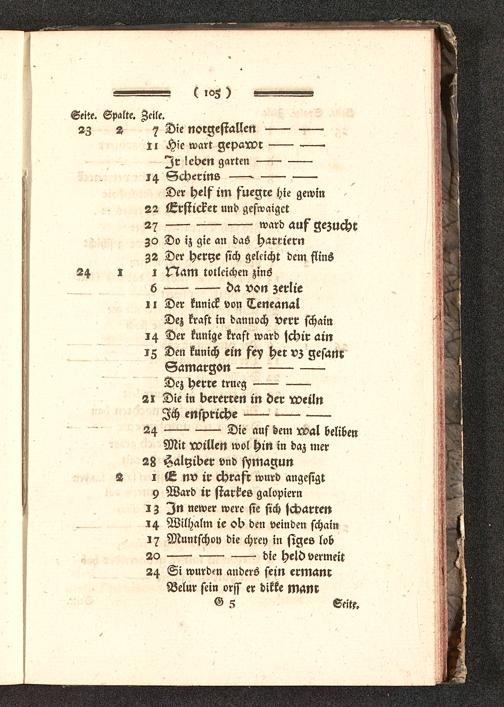 ( 105 )
Seite. Spalte. Zeile.
23 2 7 Die notgestallen — —
11 Hie wart gepawt — —
Jr leben garten — —
14 Scherins — — —
Der helf im fuegte hie gewin
22 Ersticket und geswaiget
27 — — — ward auf gezucht
30 Do iz gie an das harriern
32 Der hertze sich geleicht dem flins
24 1 1 Nam totleichen zins
6 — — da von zerlie
11 Der kunick von Teneanal
Dez kraft in dannoch verr schain
14 Der kunige kraft ward schir ain
15 Den kunich ein fey het vz gesant
Samargon — — —
Dez herte trueg — —
21 Die in bererten in der weiln
Ich enspriche — — —
24 — — Die auf dem wal beliben
Mit willen wol hin in daz mer
28 Haltziber vnd symagun
2 1 E nv ir chraft wurd angesigt
9 Ward ir starkes galopiern
13 In newer were sie sich scharten
14 Wilhalm ie ob den veinden schain
17 Muntschoy die chrey in siges lob
20 — — — die held vermeit
24 Si wurden anders sein ermant
Velur sein orss er dikke mant
G 5 Seite.